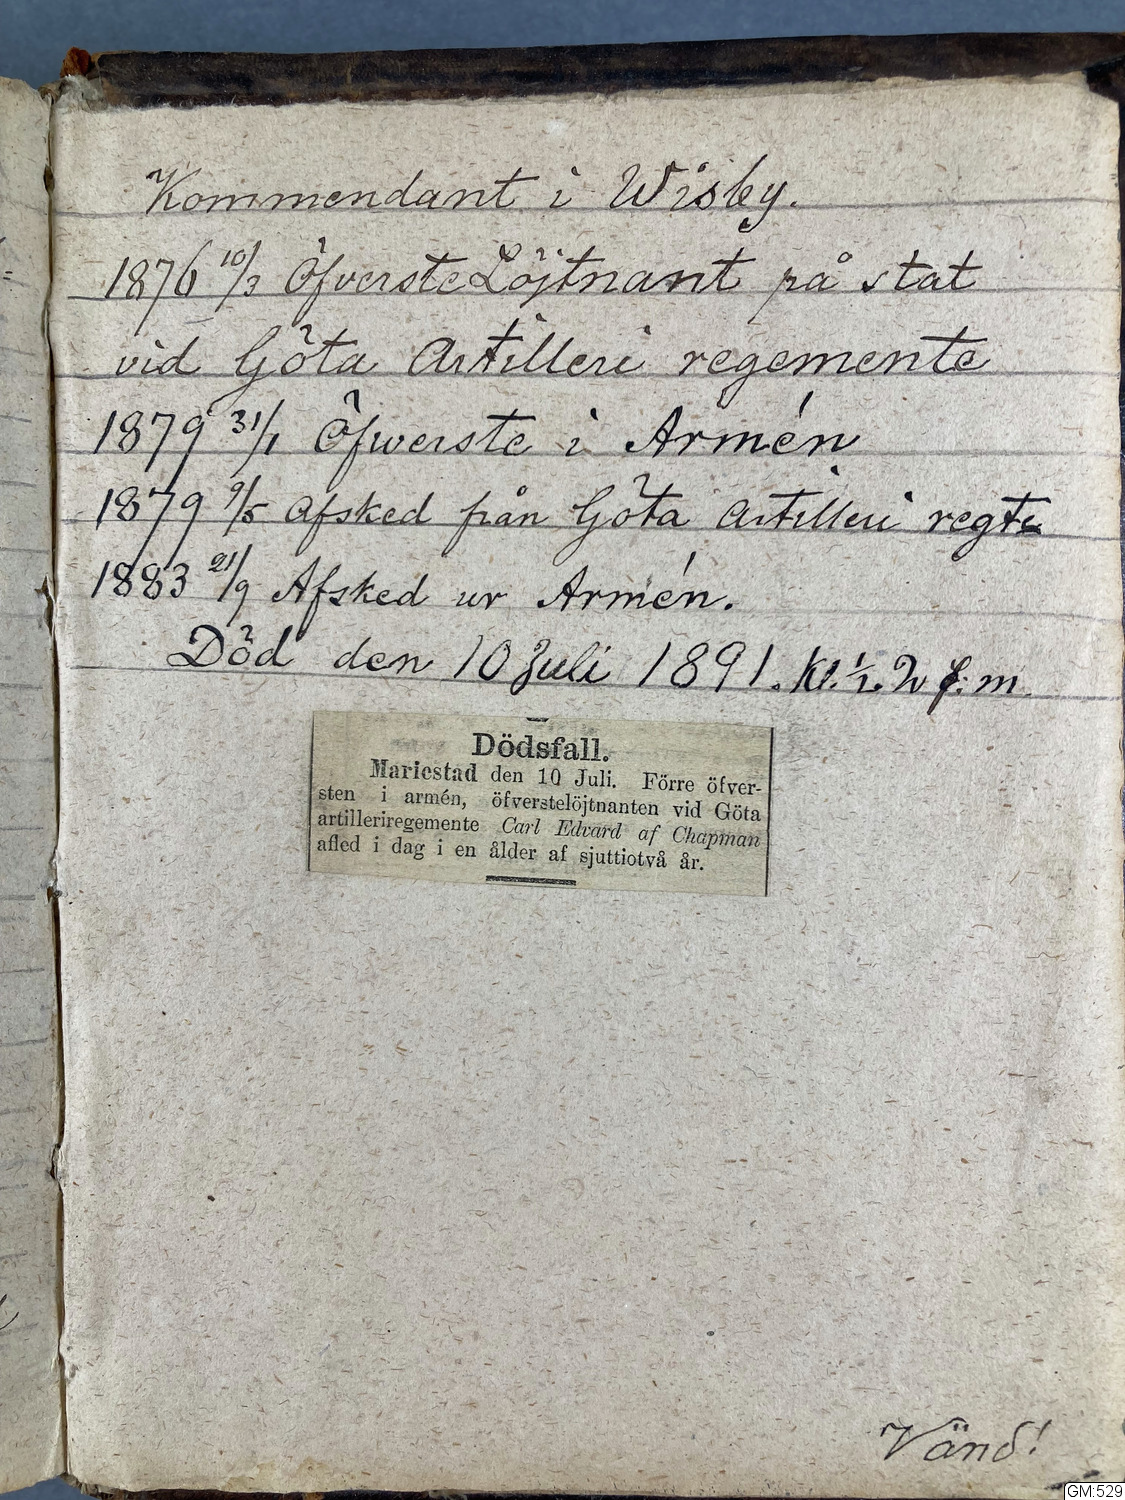 Kommendant i Wisby.
1876 10/3 Öfverste Löjtnant på stat
vid Göta Artilleri regemente
1879 31/1 Öfwerste i Armén
1879 9/5 Afsked från Göta Artilleri regte
1883 21/9 Afsked ur Armén.
Död den 10 Juli 1891. Kl. ½. 2 f: m.
Dödsfall.
Mariestad den 10 Juli. Förre öfver-
sten i armén, öfverstelöjtnanten vid Göta
artilleriregemente Carl Edvard af Chapman
afled i dag i en ålder af sjuttiotvå år.
Vänd!
GM:529